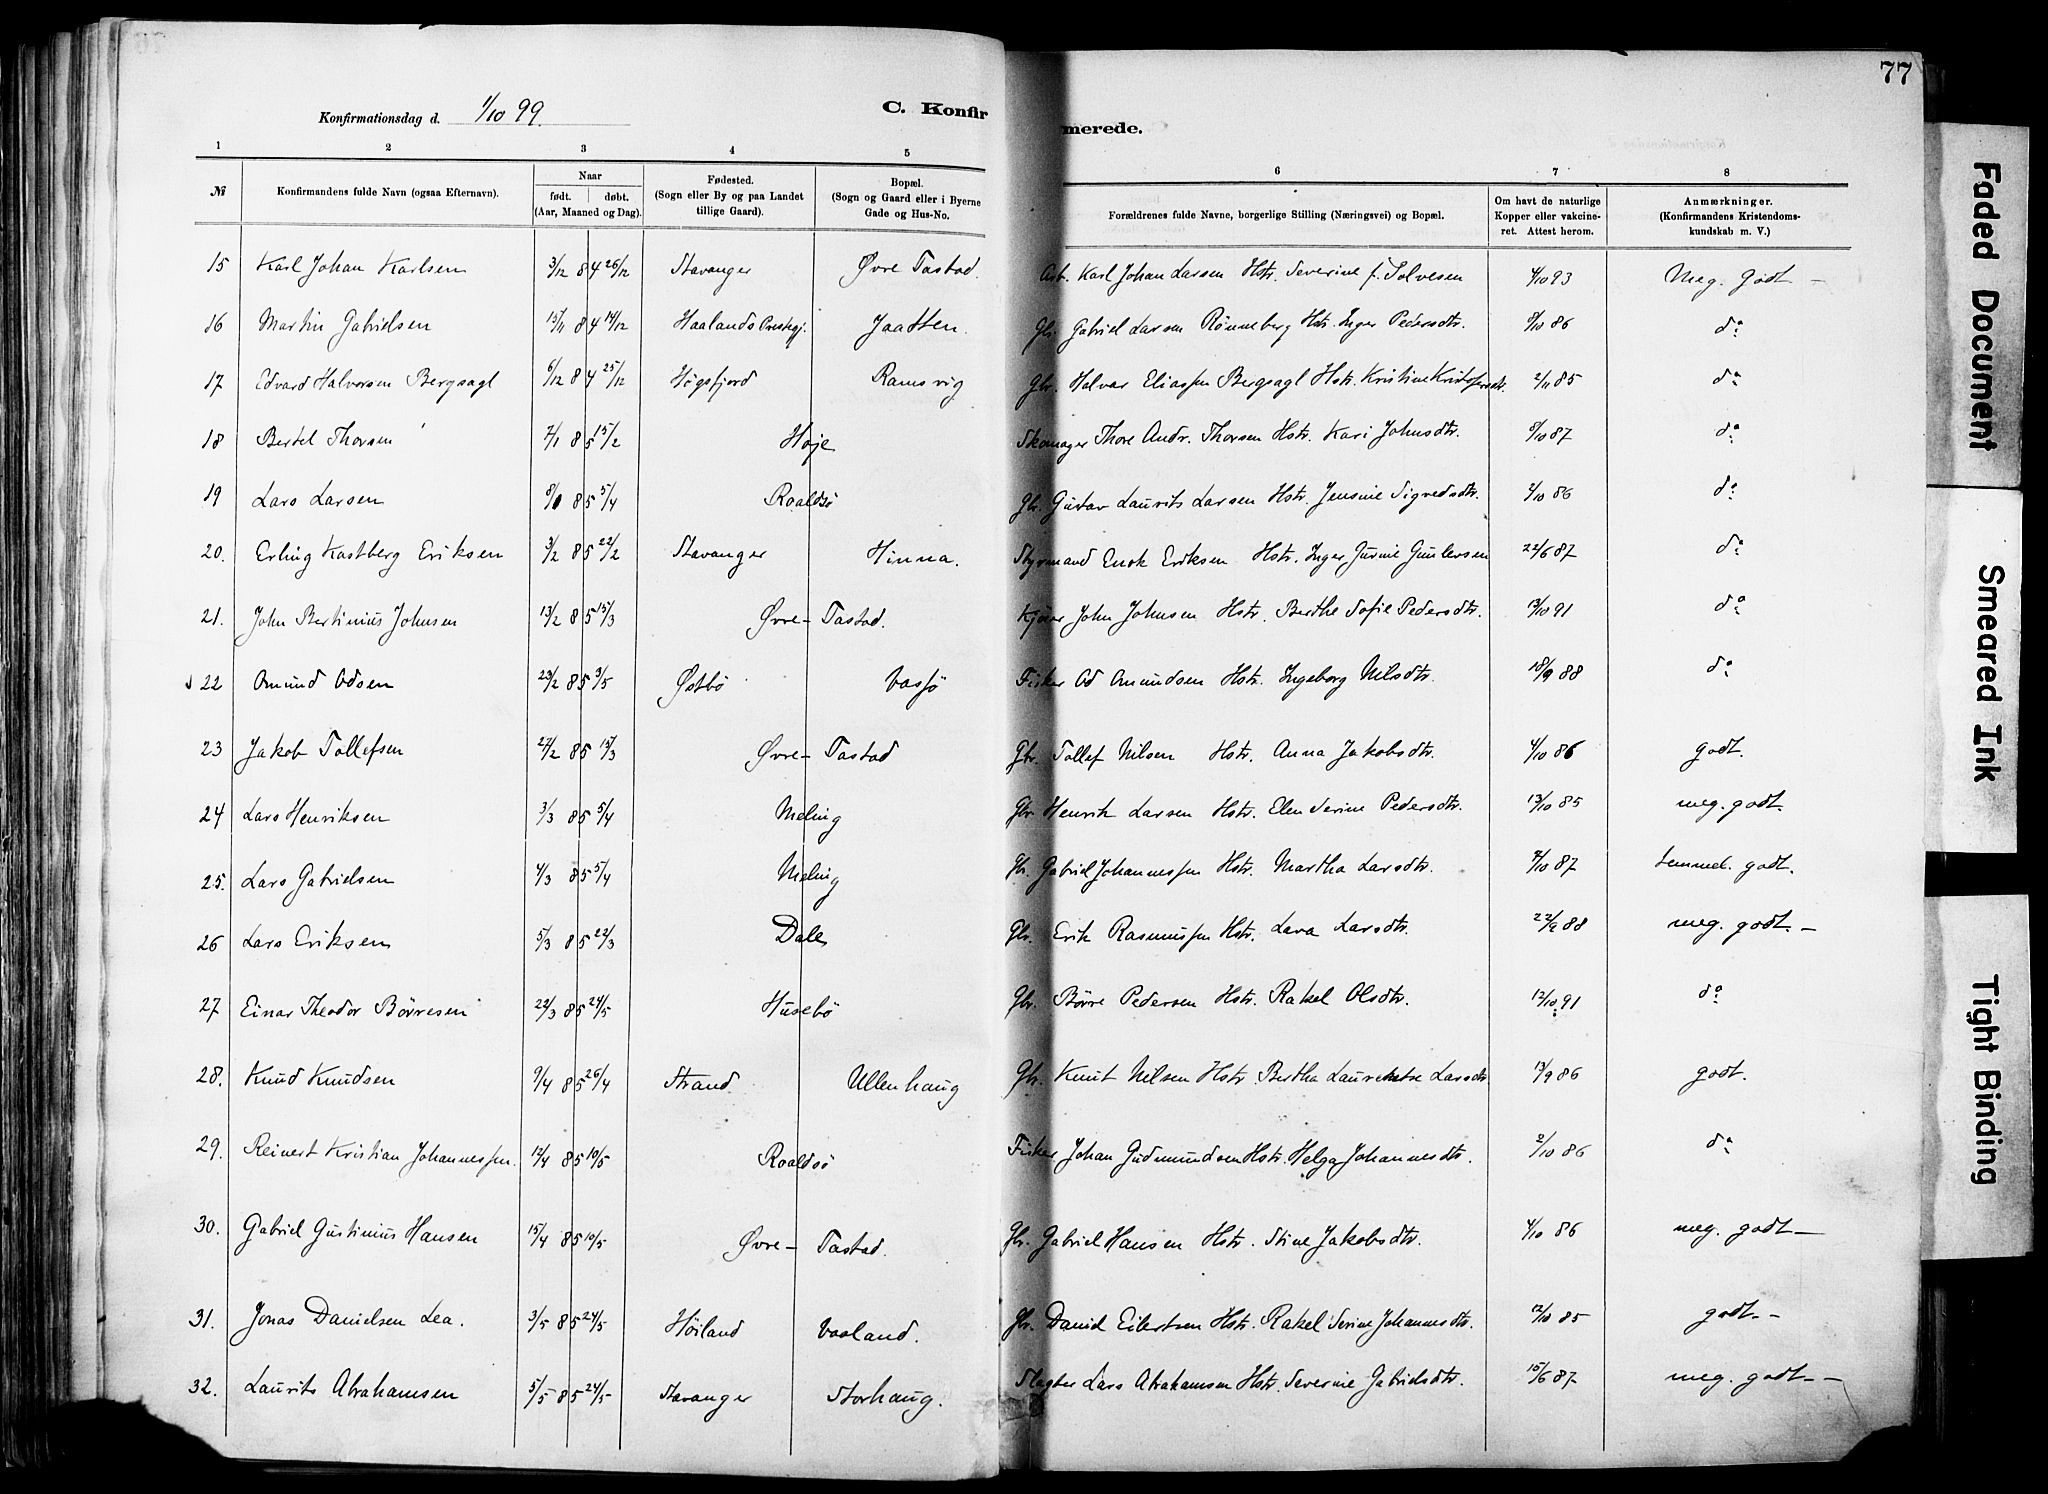 77
Konfirmationsdag d. 1/10 99.
C. Konfirmerede.
1 2 3 4 5 6 7 8
№
Konfirmandens fulde Navn (ogsaa Efternavn).
Naar
født. døbt.
(Aar, Maaned og Dag).
Fødested.
(Sogn eller By og paa Landet
tillige Gaard).
Bopæl.
(Sogn og Gaard eller i Byerne
Gade og Hus-No.
Forældrenes fulde Navne, borgerlige Stilling (Næringsvei) og Bopæl.
Om havt de naturlige
Kopper eller vakcine-
ret. Attest herom.
Anmærkninger.
(Konfirmandens Kristendoms-
kundskab m. V.)
15 Karl Johan Karlsen 3/12 84 26/12 Stavanger Øvre Tastad. Arb. Karl Johan Larsen Hstr. Severine f. Tolvesen 4/10 93 Meg. godt –
16 Martin Gabrielsen 15/11 84 14/12 Haalands Prestegj. Jaatten. Gbr. Gabriel Larsen Rönneberg Hstr. Inger Pedersdtr. 9/10 86 do
17 Edvard Halvorsen Bergsagl 6/12 84 25/12 Högsfjord Ramsvig Gbr. Halvar Eliassen Bergsagl Hstr. Kristine 2/11 85 do
18 Bertel Thorsen 2/1 85 15/2 Høje Skomager Thore Andr. Thorsen Hstr. Kari Johnsdtr. 9/10 87 do
19 Lars Larsen 85 5/4 Roaldsö Gbr. Gustav Laurits Larsen Hstr. Jensine Sigvedsdtr. 2/10 86 do
20. Erling Kastberg Eriksen 3/2 85 22/2 Stavanger Hinna. Styrmand Enok Eriksen Hstr. Inger Gurine Gunlevsen 22/6 87 do
21. John Bertinius Johnsen 13/2 85 15/3 Øvre-Tastad. John Johnsen Hstr. Berthe Sofie Pedersdtr. 13/10 91 do
22 Omund Odsen 23/2 85 3/5 Østbö Vassö Fisker Od Omundsen Hstr. Ingeborg Nilsdtr. 18/9 88 do
23 Jakob Tollefsen 27/2 85 15/3 Øvre-Tastad Gbr. Tollef Nilsen Hstr. Anna Jakobsdtr. 4/10 86 godt.
24 Lars Henriksen 3/3 85 5/4 Meling Gbr. Henrik Larsen Hstr. Elen Serine Pedersdtr. 13/10 85 meg. godt.
25. Lars Gabrielsen 4/3 85 5/4 Meling Gbr. Gabriel Johannessen Hstr. Martha Larsdtr. 7/10 87 temmel. godt.
26 Lars Eriksen 5/3 85 22/3 Dale Gbr. Erik Rasmussen Hstr. Lava Larsdtr. 22/9 88 meg. godt. –
27 Einar Theodor Börresen 22/3 85 24/5 Husebö Gbr. Börre Pedersen Hstr. Rakel Olsdtr. 12/10 91 do
28. Knud Knudsen 9/4 85 26/4 Strand. Ullenhaug Gbr. Knut Nilsen Hstr. Bertha Larsdtr 13/9 86 godt.
29. Reinert Kristian Johannessen. 12/4 85 10/5 Roaldsö Fisker Johan Gudmundsen Hstr. Helga Johannesdtr. 2/10 86 do
30. Gabriel Gustinius Hansen 15/4 85 10/5 Øvre-Tastad. Gbr. Gabriel Hansen Hstr. Stine Jakobsdtr. 4/10 86 meg. godt –
31. Jonas Danielsen Lea. 3/5 85 24/5 Höiland Vaaland. Gbr. Daniel Eilertsen Hstr. Rakel Serine Johannesdtr. 12/10 85 godt. –
32. Laurits Abrahamsen 5/5 85 24/5 Stavanger Storhaug. Slagter Lars Abrahamsen Hstr. Severine Gabrielsdtr. 15/6 87 meg. godt. –
Faded Document
Smeared Ink
Tight Binding